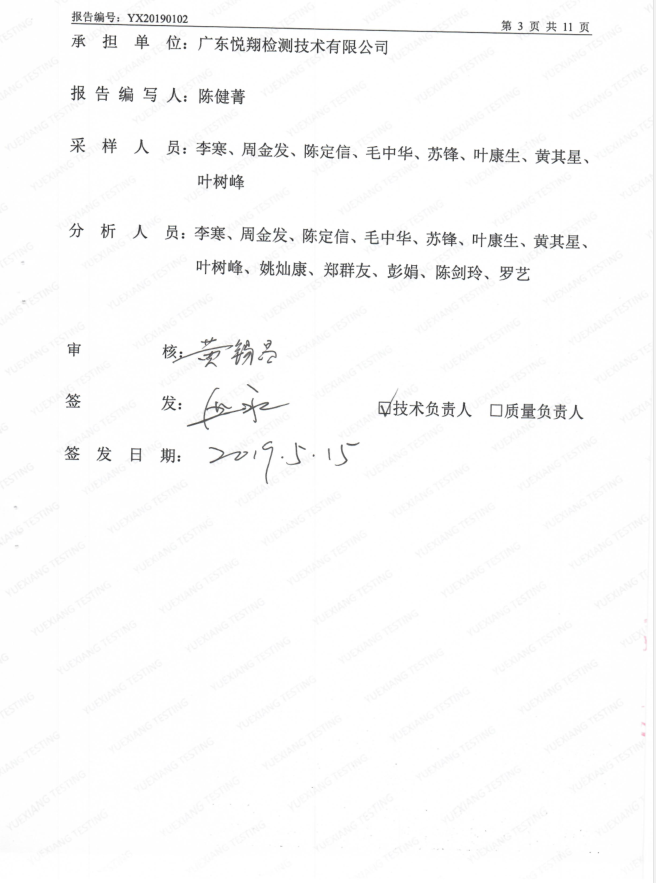 报告编号：YX20190102
第 3 页 共 11 页
承担单位：广东悦翔检测技术有限公司
报告编写人：陈健菁
采样人员：李寒、周金发、陈定信、毛中华、苏锋、叶康生、黄其星、
叶树峰
分析人员：李寒、周金发、陈定信、毛中华、苏锋、叶康生、黄其星、
叶树峰、姚灿康、郑群友、彭娟、陈剑玲、罗艺
审核：黄锡昌
签发：
☑技术负责人 □质量负责人
签发日期：2019.5.15
YUEXIANG TESTING